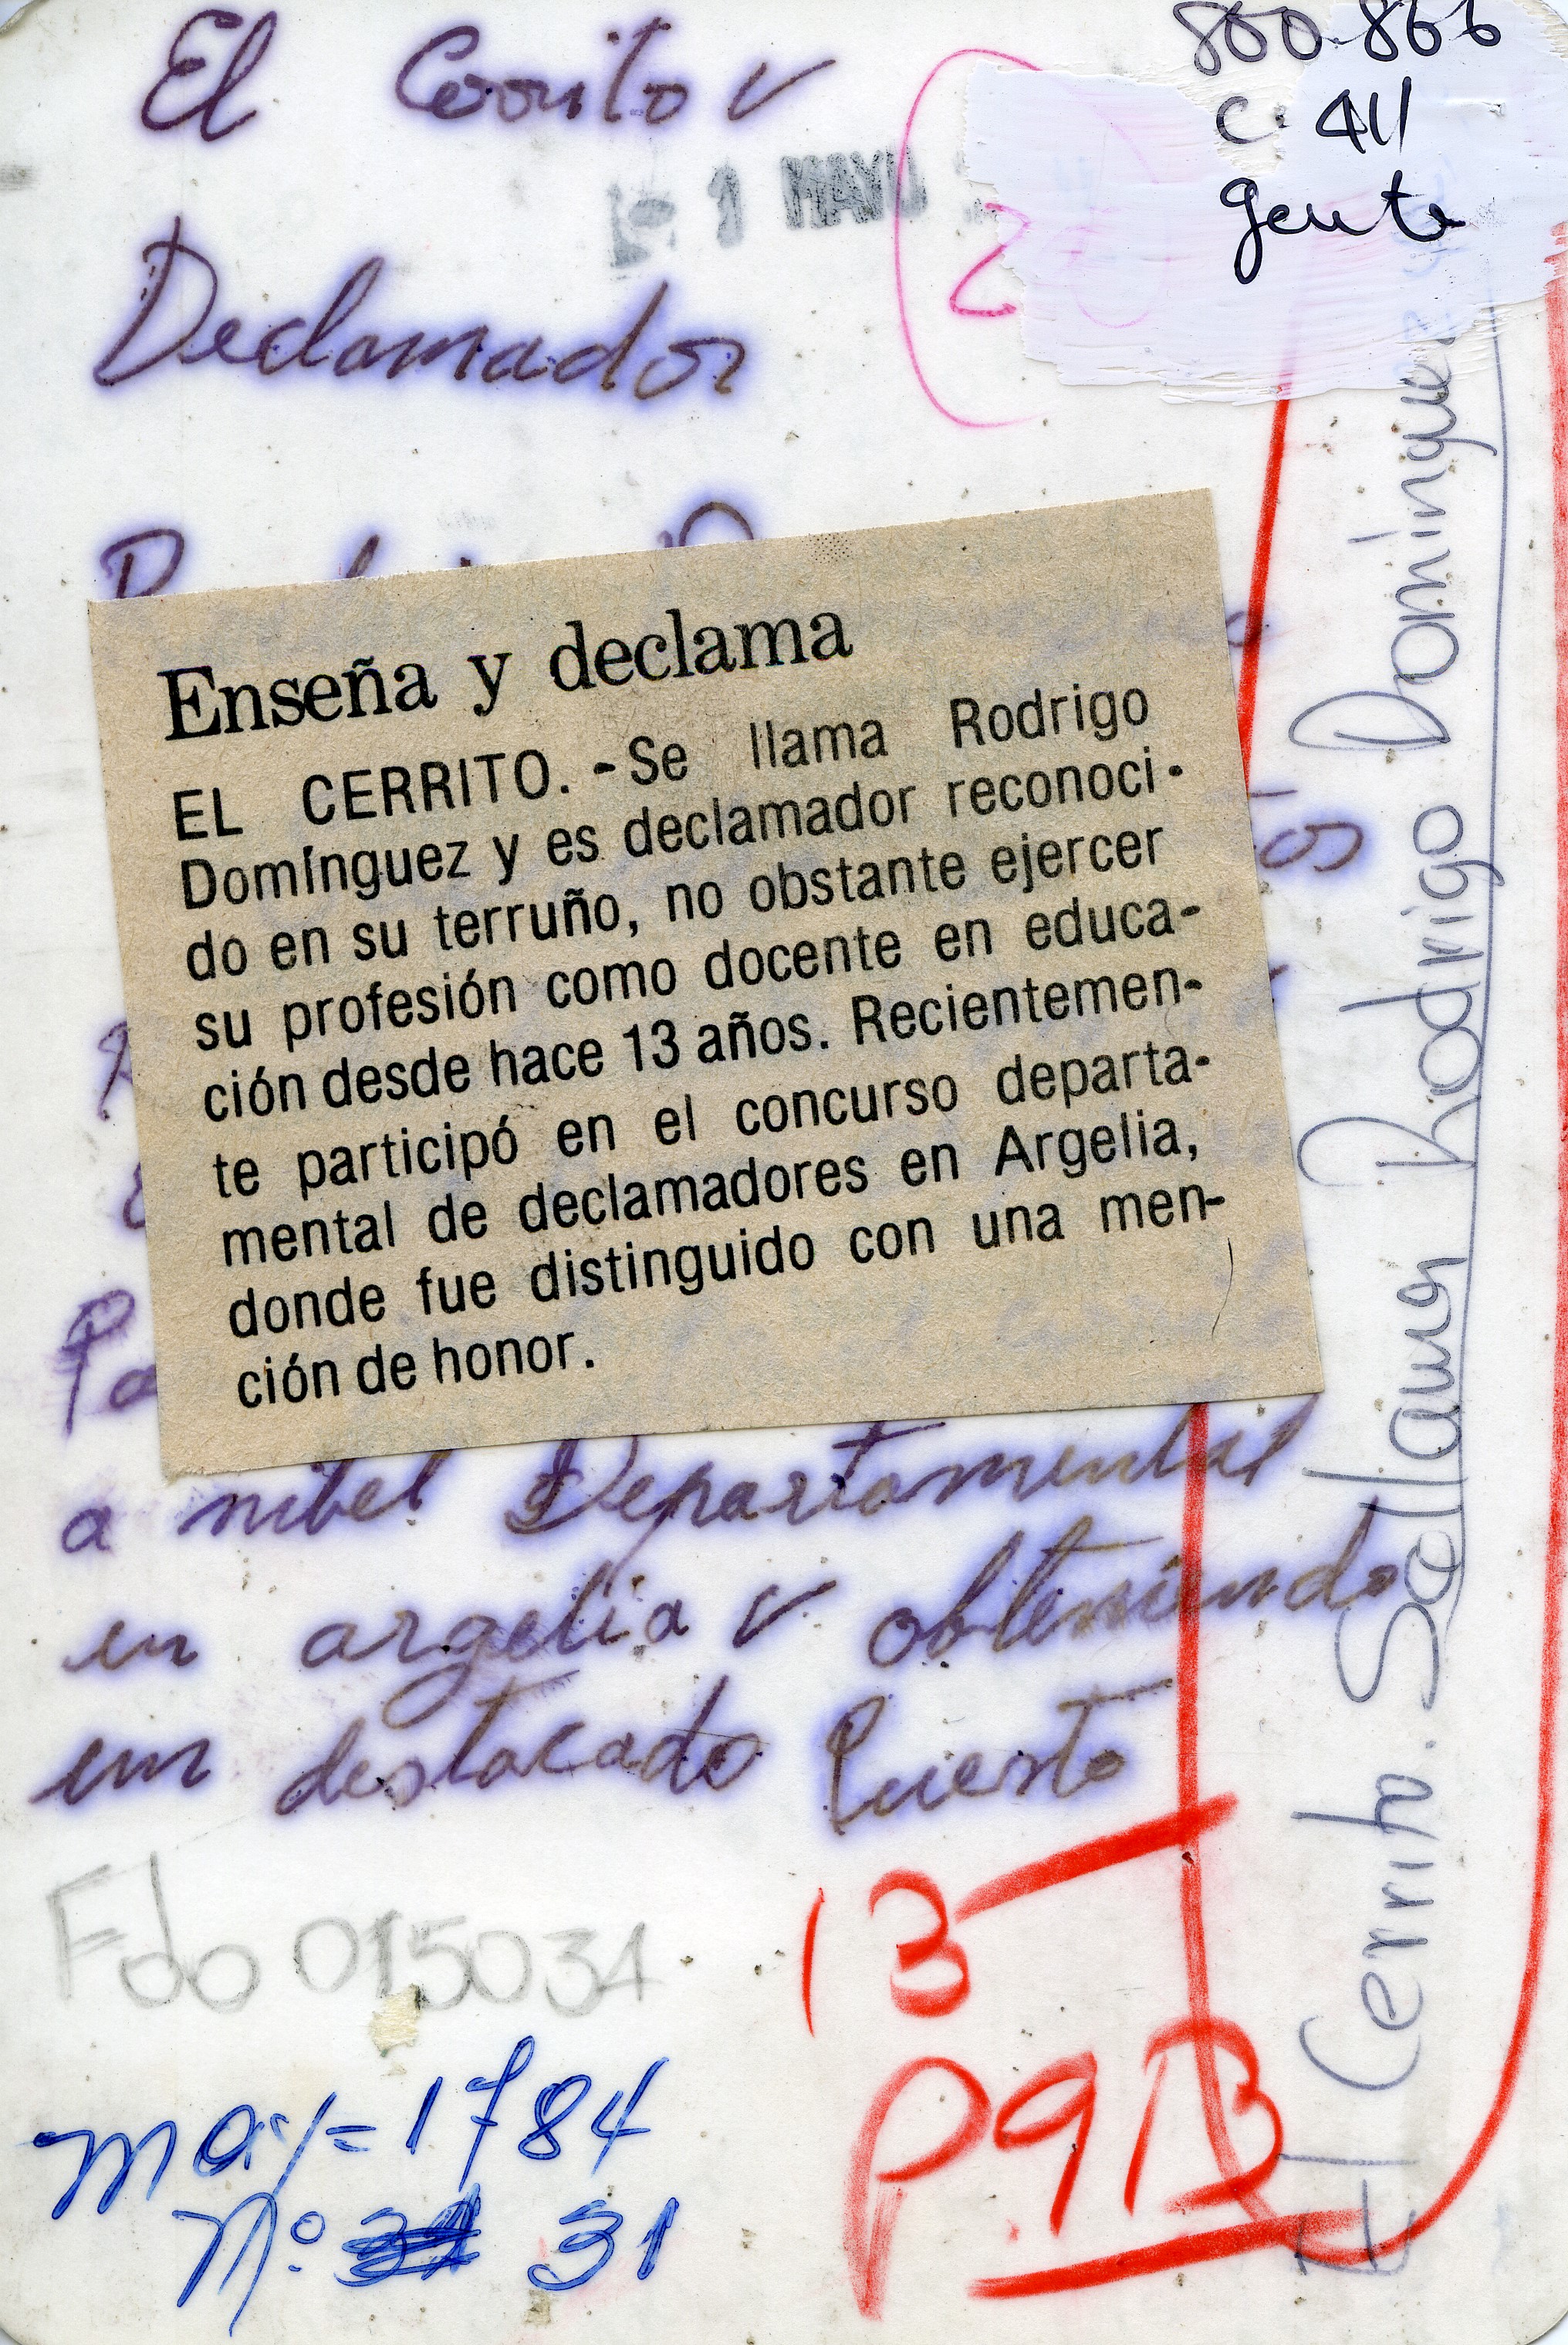 800.866
C. 411
gente
El Cerrito
Declamador
1 MAYO
2
Enseña y declama
EL CERRITO. -Se llama Rodrigo
Domínguez y es declamador reconoci-
do en su terruño, no obstante ejercer
su profesión como docente en educa-
ción desde hace 13 años. Recientemen-
te participó en el concurso departa-
mental de declamadores en Argelia,
donde fue distinguido con una men-
ción de honor.
a nibel Departamental
en argelia obteniendo
un destacado Puesto
Fdo 015034
13
may=1784
N:o 31
P.913
El Cerrito. Rodrigo Domínguez